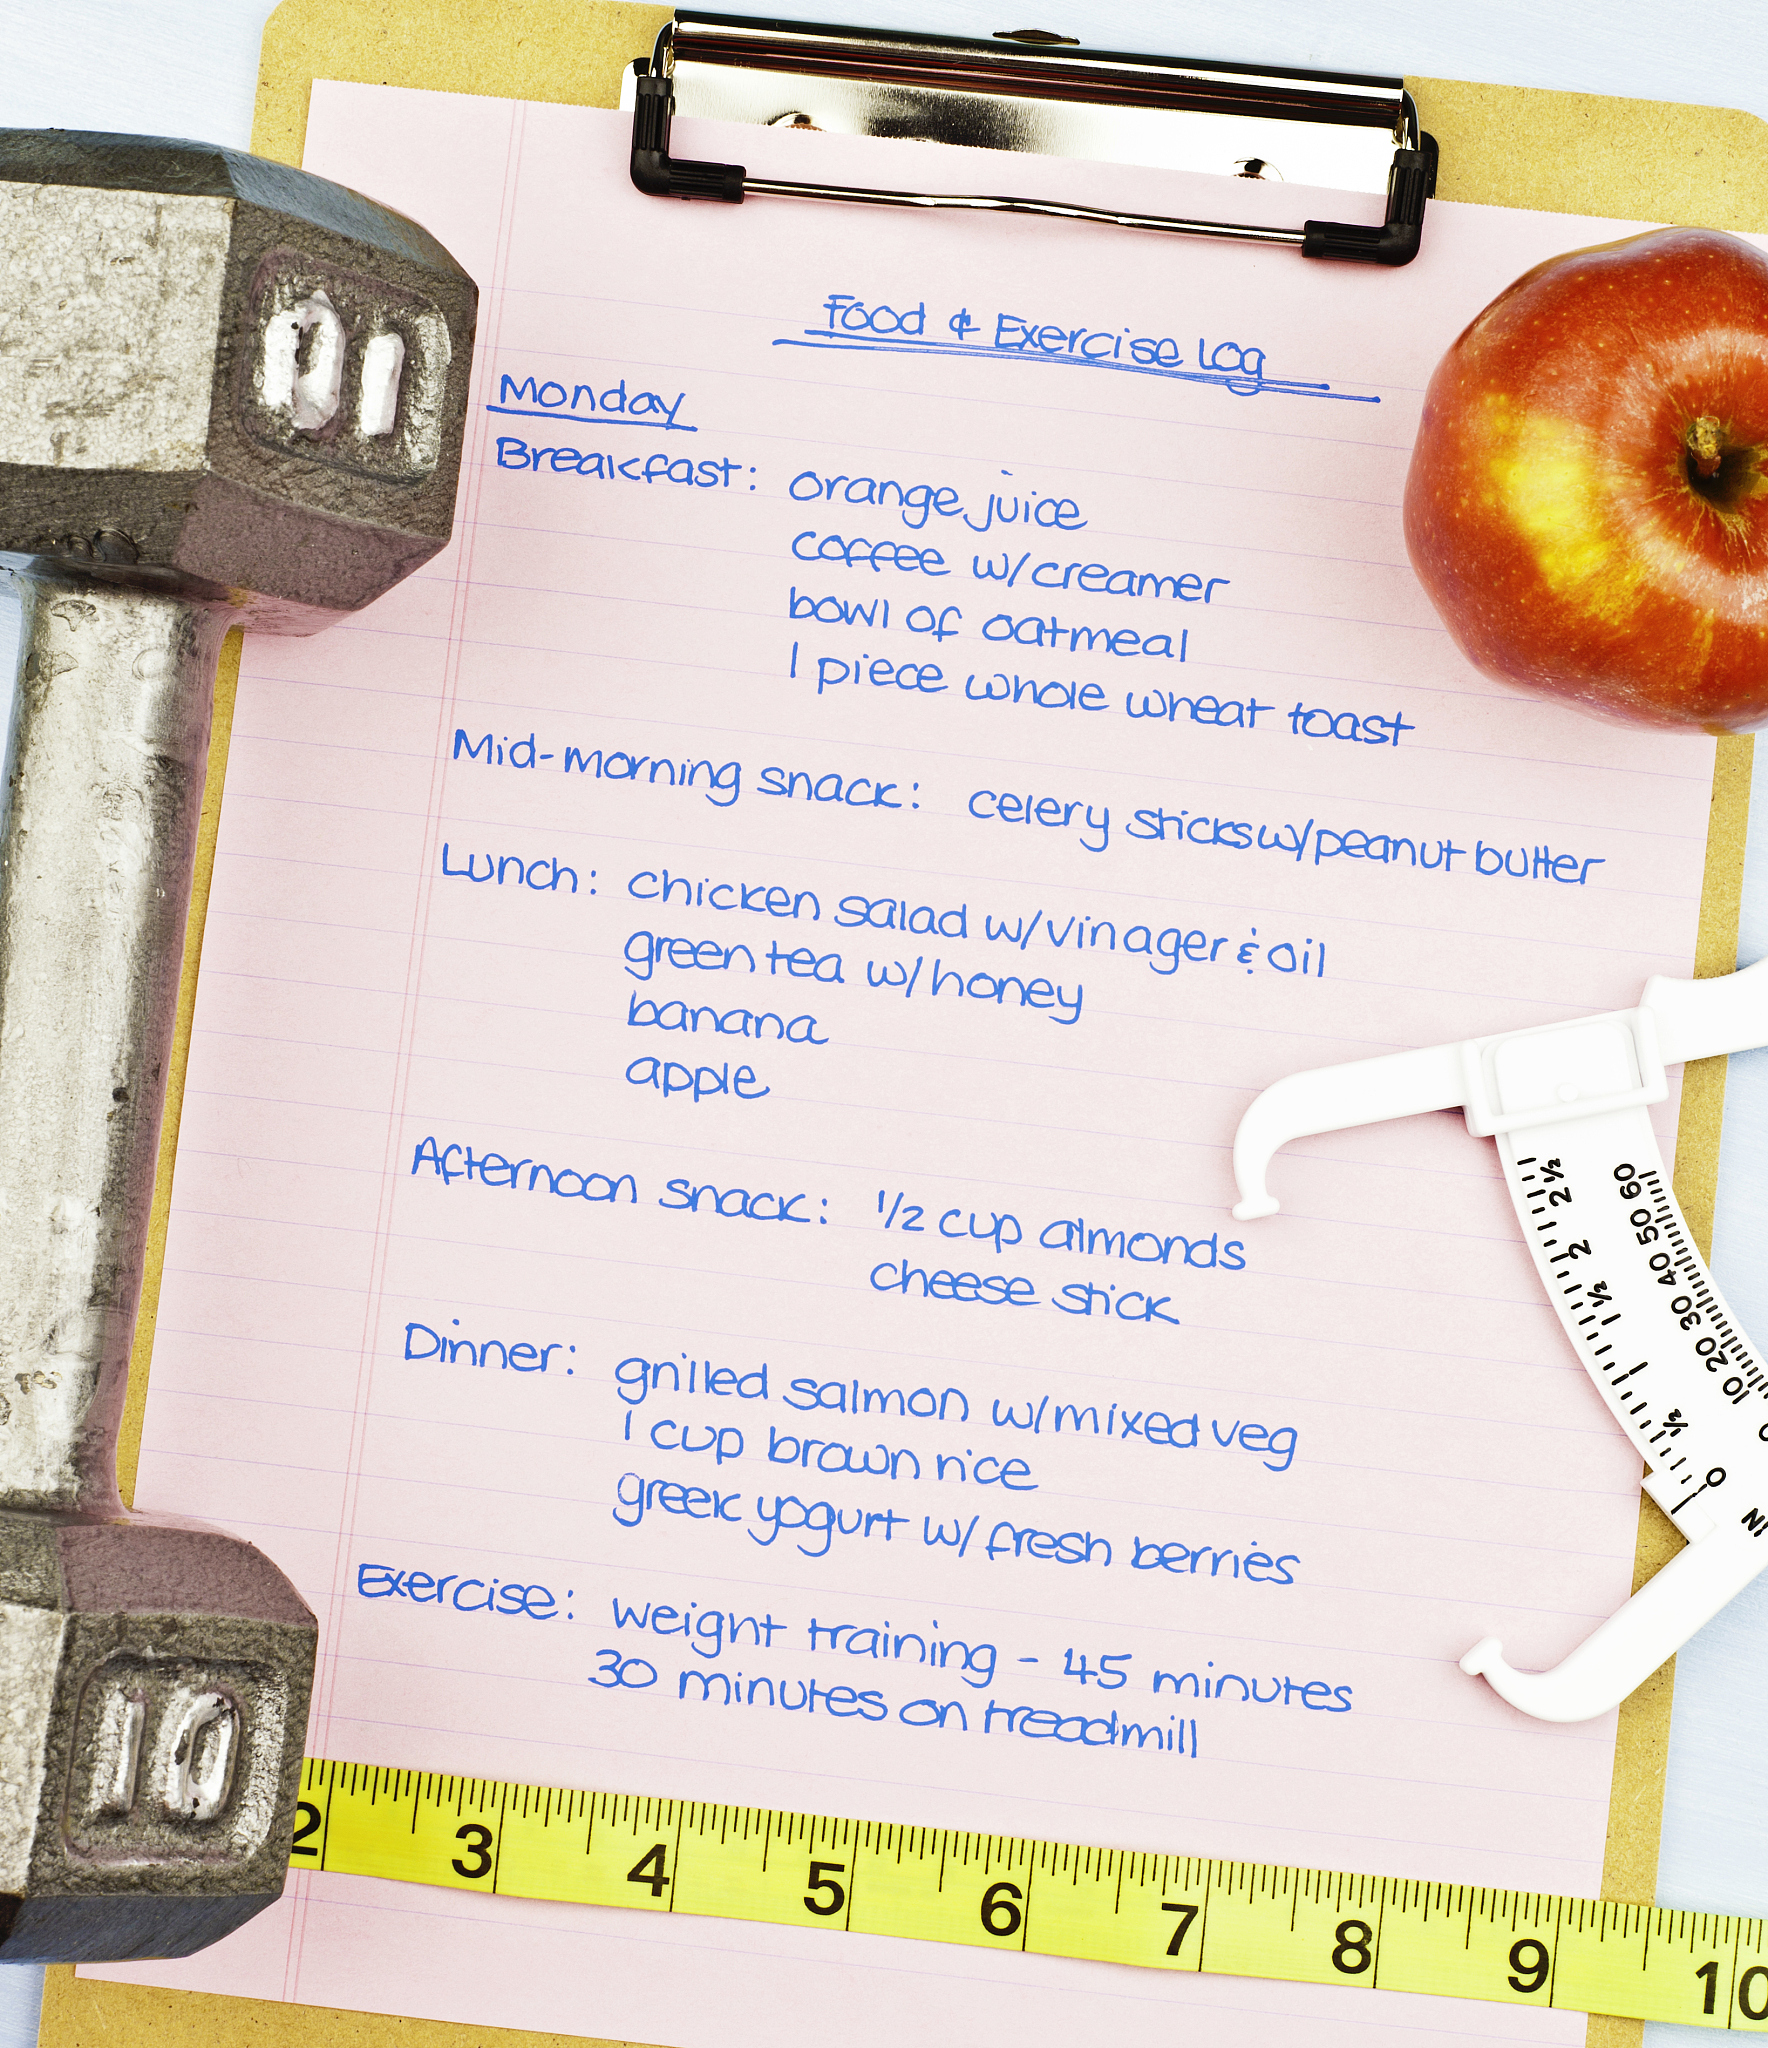 Food & Exercise Log
Monday
Breakfast: orange juice
coffee w/creamer
bowl of oatmeal
1 piece whole wheat toast
Mid-morning snack: celery sticks w/peanut butter
Lunch: chicken salad w/vinager & oil
green tea w/honey
banana
apple
Afternoon snack: 1/2 cup almonds
cheese stick
Dinner: grilled salmon w/mixed veg
1 cup brown rice
greek yogurt w/ fresh berries
Exercise: weight training - 45 minutes
30 minutes on treadmill
10
10
2 3 4 5 6 7 8 9 10
2 1/2 2 1 1/2 1 1/2 0
60 50 40 30 20 10
IN